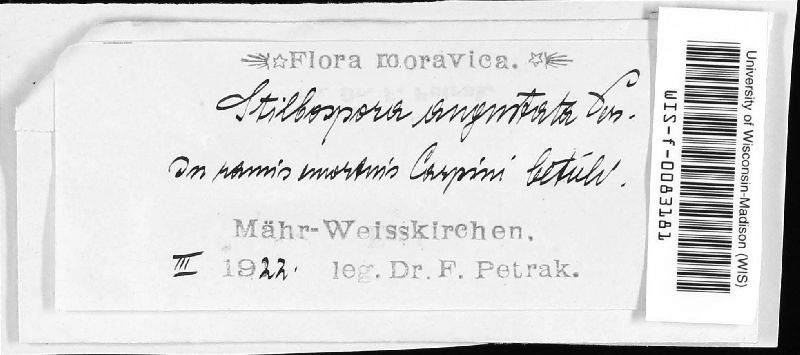 Flora moravica.
Stilbospora angustata Pers.
in ramis emortuis Carpini betuli.
Mähr-Weisskirchen,
III 1922. leg. Dr. F. Petrak.
University of Wisconsin-Madison (WIS)
WIS-f-0083181